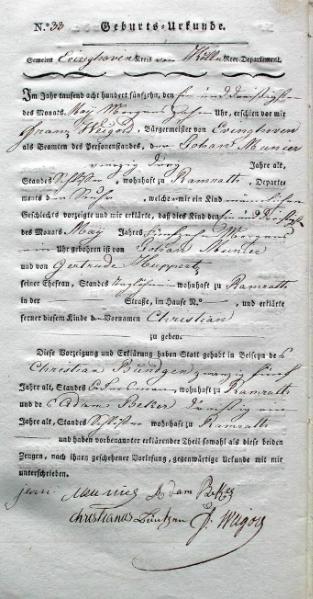 N.º 33 Geburts-Urkunde.
Gemeint Evinghoven Kreis von Kölln Roer-Departement.
Im Jahr tausend acht hundert fünfzehn, den ein und dreyßigsten
des Monats May Morgens zehn Uhr, erschien vor mir
Franz Weigold, Bürgermeister von Evinghoven
als Beamten des Personenstandes, der Johan Meunier
vierzig drey Jahre alt,
Standes wohnhaft zu Ramrath, Departe-
ments der Ruhr, welcher mir ein Kind männlichen
Geschlechts vorzeigte und mir erklärte, daß dies Kind den ein und dreißigsten
des Monats May Jahres fünfzehn Morgens
ein Uhr gebohren ist von Johan Meunier
und von Gertrude Huppertz
seiner Ehefrau, Standes wohnhaft zu Ramrath
in der Straße, im Hause N.º , und erklärte
ferner diesem Kinde den Vornamen Christian
zu geben.
Diese Vorzeigung und Erklärung haben Statt gehabt in Beiseyn des
Christian Bündgen zwanzig fünf
Jahre alt, Standes wohnhaft zu Ramrath
und des Adam Beker dreyßig ein
Jahre alt, Standes wohnhaft zu Ramrath
und haben vorbenannter erklärender Theil sowohl als diese beiden
Zeugen, nach ihnen geschehener Vorlesung, gegenwärtige Urkunde mit mir
unterschrieben.
jean Meunier Adam Beker
Christianus Büntgen F. Weigold